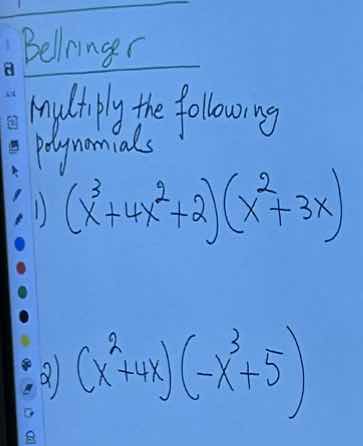 Bellringer
Multiply the following
polynomials
1) (x³+4x²+2)(x²+3x)
2) (x²+4x)(-x³+5)